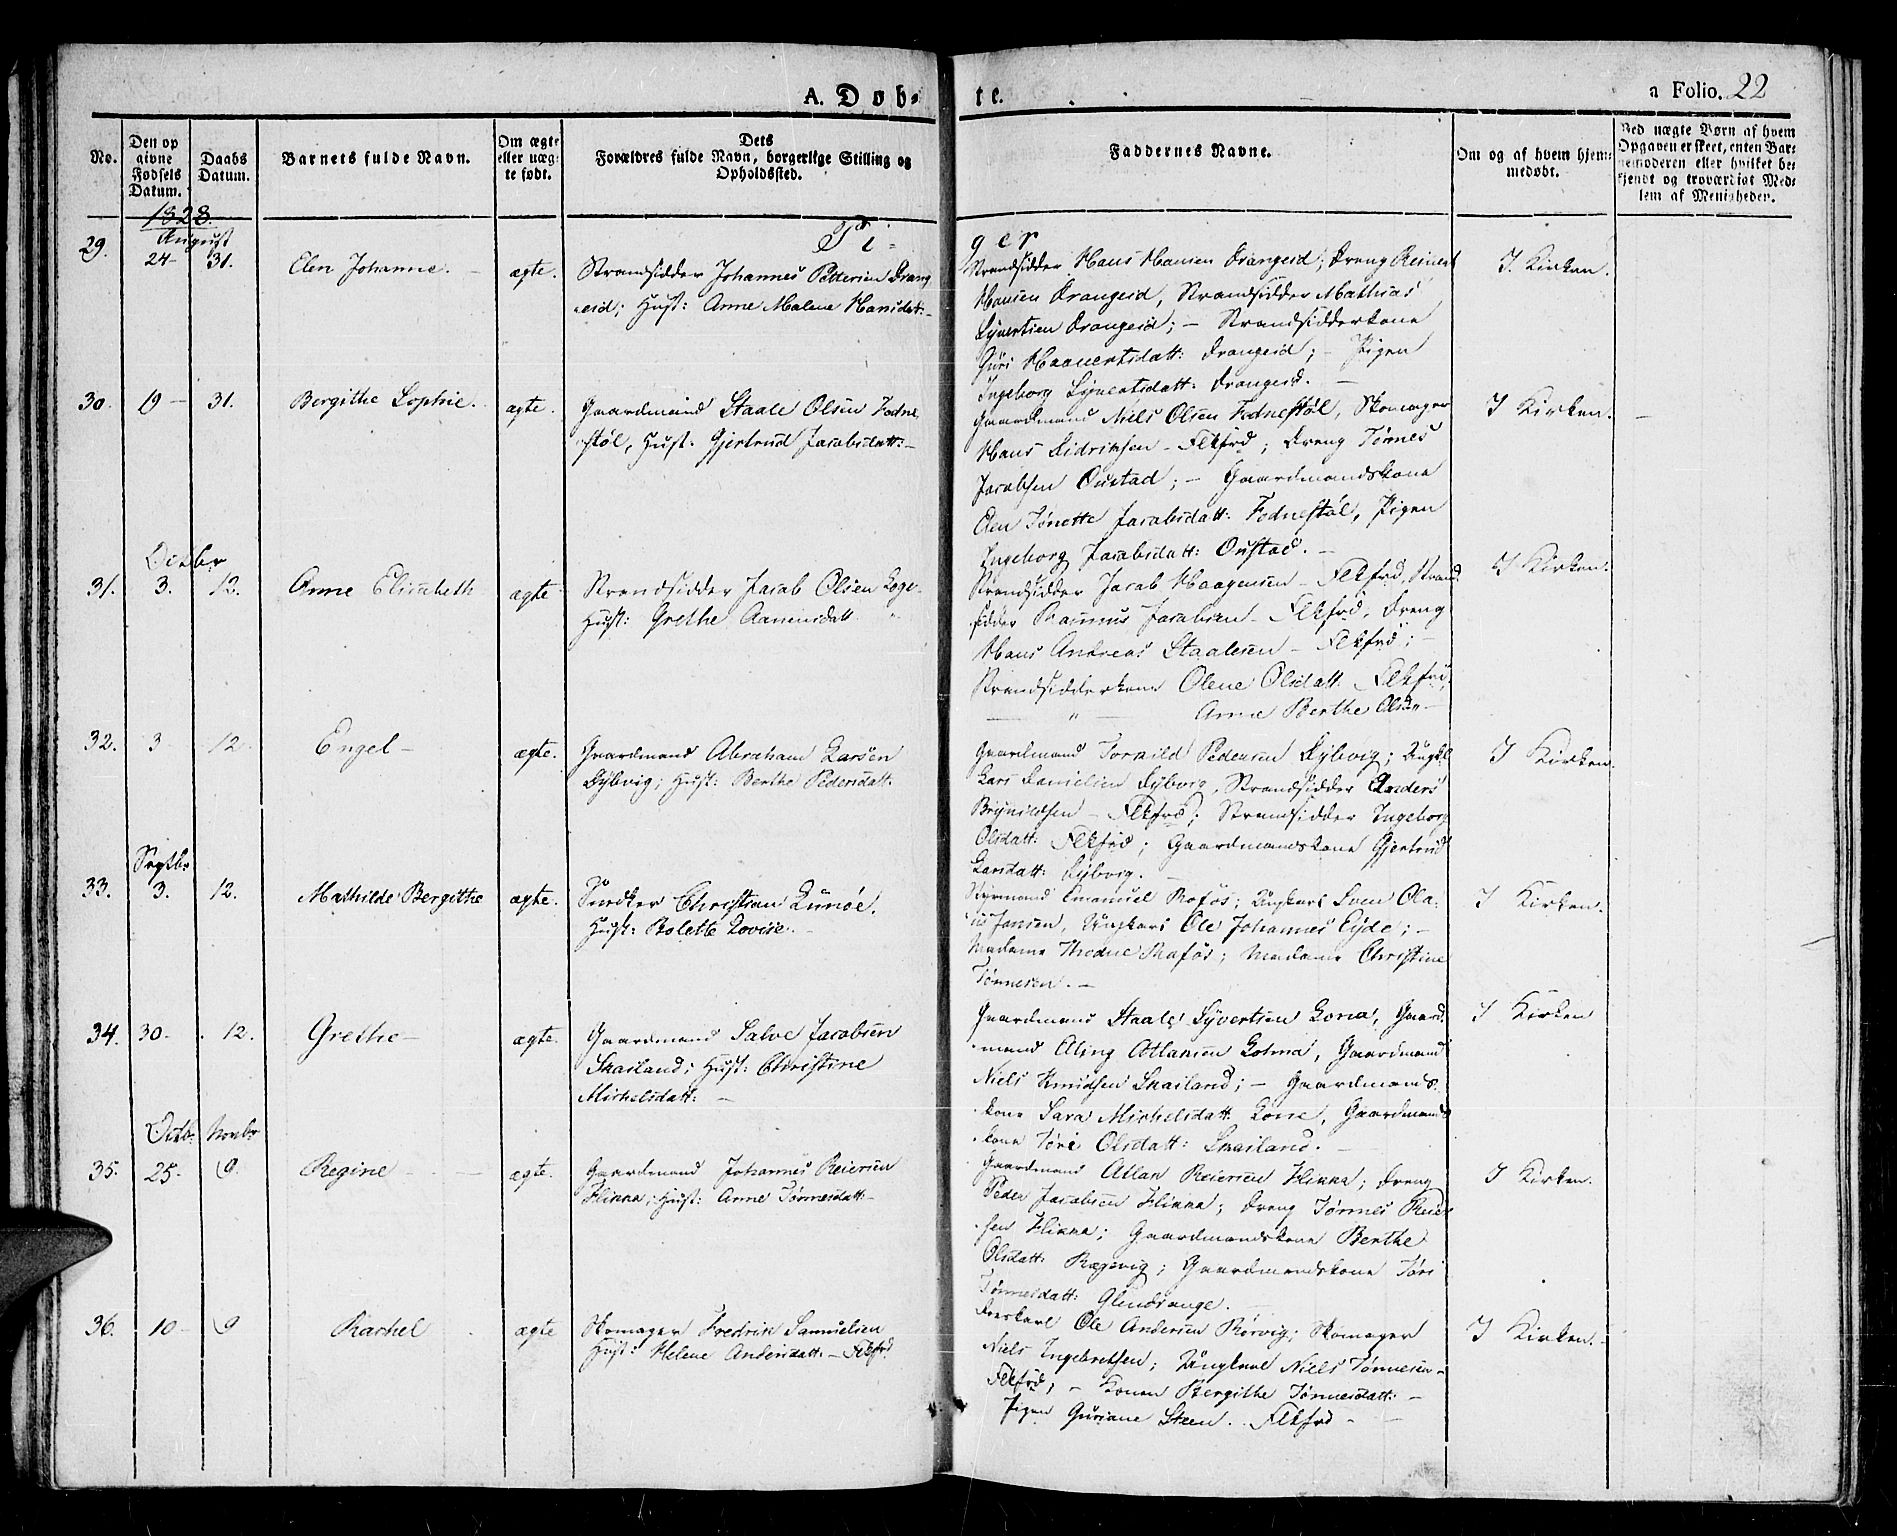 A. Døb-
te.
a Folio. 22
No.
Den op
givne
Fødsels
Datum.
Daabs
Datum.
Barnets fulde Navn.
Om ægte
eller uæg-
te født.
Dets
Forældres fulde Navn, borgerlige Stilling og
Opholdssted.
Faddernes Navne.
Om og af hvem hjem-
medøbt.
Ved uægte Børn af hvem
Opgaven er skeet, enten Bar-
nemoderen eller hvilket be-
kjendt og troværdigt Med-
lem af Menigheden.
1828.
August
Pi-
ger
29. 24 31. Elen Johanne. ægte. Strandsidder Johannes Pedersen Drang
eid; Hust: Anne Malene Hansdatt:
Strandsidder Hans Hansen Drangeid; Dreng Reinert
Hansen Drangeid, Strandsidder Mathias
Syvertsen Drangeid; – Strandsidderkone
Guri Haavertsdatt: Drangeid; – Pigen
Ingeborg Syvertsdatt: Drangeid. –
I Kirken.
30. 19 – 31. Bergithe Sophie. ægte. Gaardmand Staale Olsen Fedne
støl, Hust. Gjertrud Jacobsdatt: –
Gaardmand Niels Olsen Fednestøl, Skomager
Hans Didriksen – Flekfrd; Dreng Tønnes
Jacobsen Oustad; – Gaardmandskone
Elen Tønette Jacobsdatt: Fednestøl, Pigen
Ingeborg Jacobsdatt: Oustad. –
I Kirken.
Octbr
31. 3. 12. Anne Elisabeth ægte Strandsidder Jacob Olsen Loge
Hust: Grethe Aanensdatt
Strandsidder Jacob Haagensen – Flekfrd, Strand
sidder Rasmus Jacobsen – Flekfrd, Dreng
Hans Andreas Staalesen – Flekfrd; –
Strandsidderkone Olene Olsdatt. Flekfrd,
– " – Anne Berthe Olsd" –
I Kirken.
32. 3 12 Engel – ægte. Gaardmand Abraham Larsen
Dybvig; Hust: Berthe Pedersdatt.
Gaardmand Torkild Pedersen Dybvig; Ungkl
Lars Danielsen Dybvig, Strandsidder Anders
Brynildsen – Flekfrd; Strandsidder Ingeborg
Olsdatt: Flekfrd; Gaardmandskone Gjertrud
Larsdatt: Dybvig. –
I Kirken.
Septbr
33. 3. 12. Mathilde Bergithe ægte. Snedker Christian Lunøe.
Hust: Bolette Lovise. –
Styrmand Emanuel Rofös; Ungkarl Sven Ola-
us Jansen, Ungkarl Ole Johannes Eyde; –
Madame Rafös; Madame Christine
Tønnesen. –
I Kirken.
34. 30 – 12. Grethe – ægte. Gaardmand Salve Jacobsen
Skailand; Hust: Christine
Michelsdatt: –
Gaardmand Staale Syvertsen Lona, Gaard
mand Aling Atlaksen Lolma, Gaardmand
Niels Knudsen Skailand; – Gaardmands-
kone Sara Michelsdatt: Lone, Gaardmands
kone Tøri Olsdatt: Skailand. –
I Kirken
Octbr. Novbr
35. 25 – 9. Regine – ægte. Gaardmand Johannes Reiersen
Hikka; Hust: Anne Tønnesdatt –
Gaardmand Atlak Reiersen Hikka; Dreng
Peder Jacobsen Hikka; Dreng Tønnes Reier
sen Hikka; Gaardmandskone Berthe
Olsdatt: Ragevig; Gaardmandskone Tøri
Tønnesdatt: Glendrange.
I Kirken.
36. 10 – 9 Rachel ægte Skomager Fredrik Samuelsen
Hust: Helene Andersdatt. – Flekfrd.
Ole Andersen Rørvig; Skomager
Niels Ingebretsen; Ungkarl Niels Tønnesen –
Flekfrd; – Konen Bergithe Tønnesdatt: –
Pigen Guriane Steen. Flekfrd –
I Kirken. –